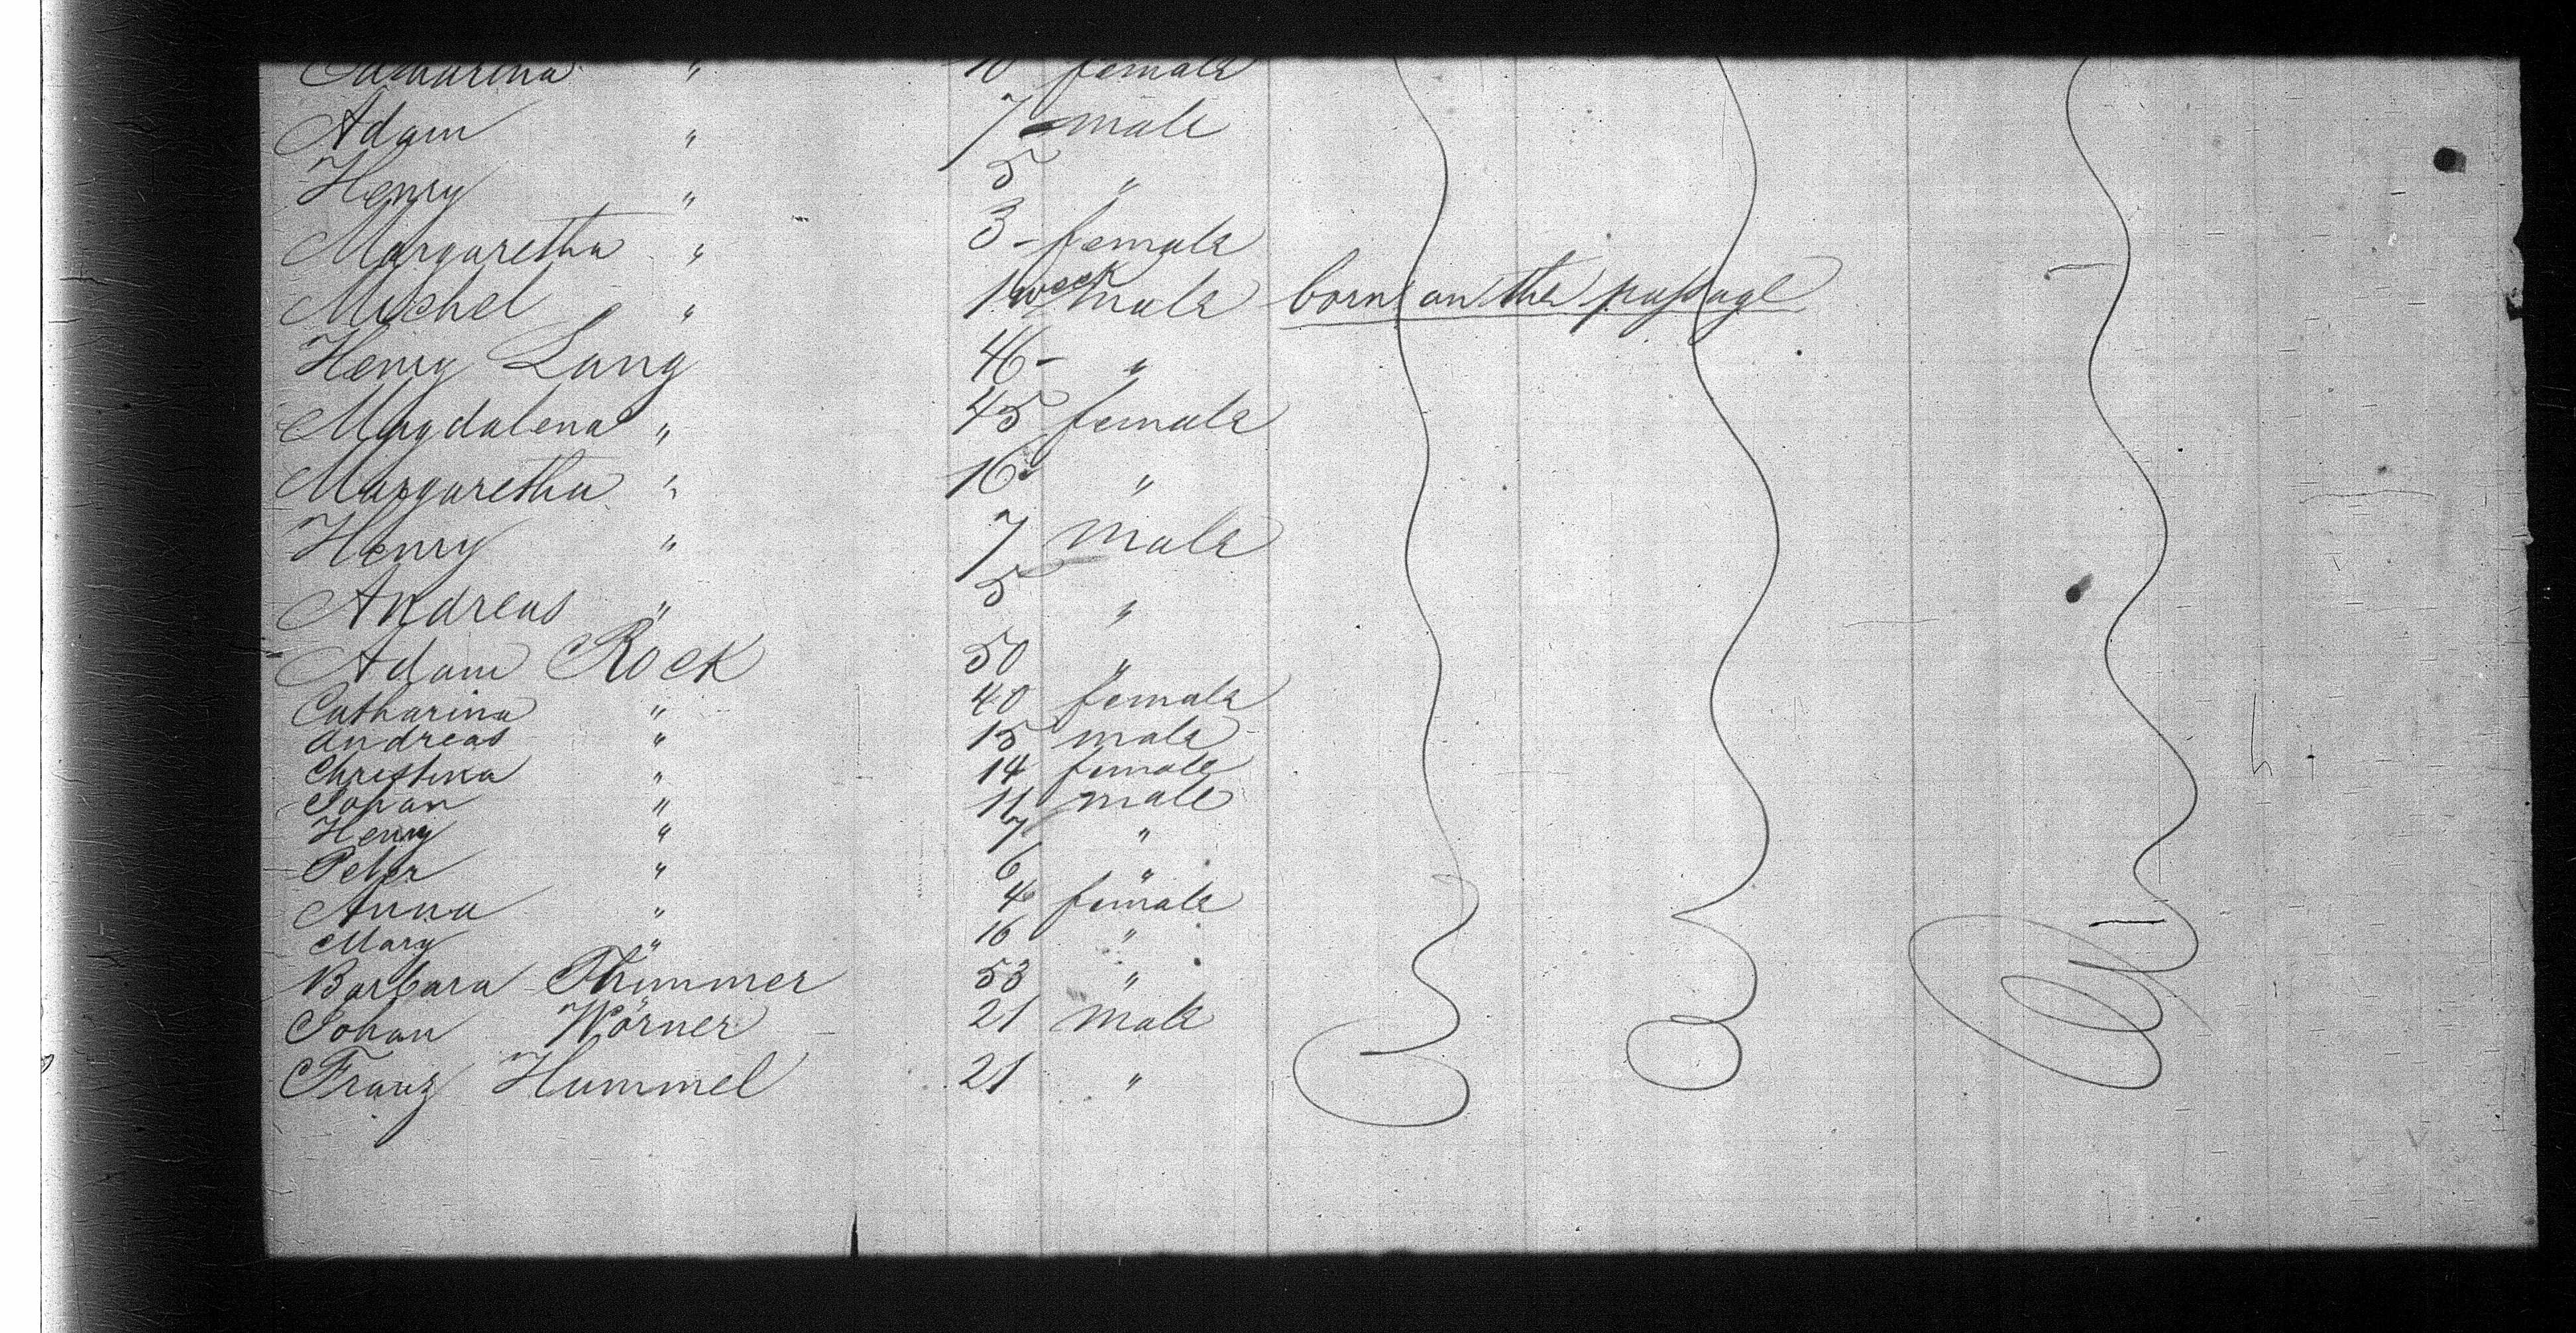 Catharina " 10 female
Adam " 7 male
Henry " 5 "
Margaretha " 3 female
Michel " 1 week male born on the passage
Henry Lang 46 "
Magdalena " 45 female
Margaretha " 16 "
Henry " 7 male
Andreas " 5 "
Adam Röck 50 "
Catharina " 40 female
Andreas " 15 male
Christina " 14 female
Johan " 11 male
Henry " 7 "
Peter " 6 "
Anna " 4 female
Mary " 16 "
Barbara Thummer 53 "
Johan Wörner 21 male
Franz Hummel 21 "